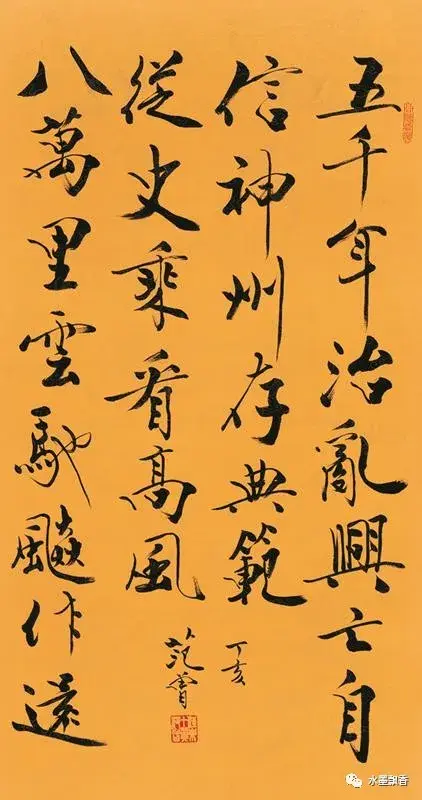 五千年治亂興亡自
信神州存典範
丁亥
八萬里雲馳飈作還
從史乘看高風
范曾
水墨飘香